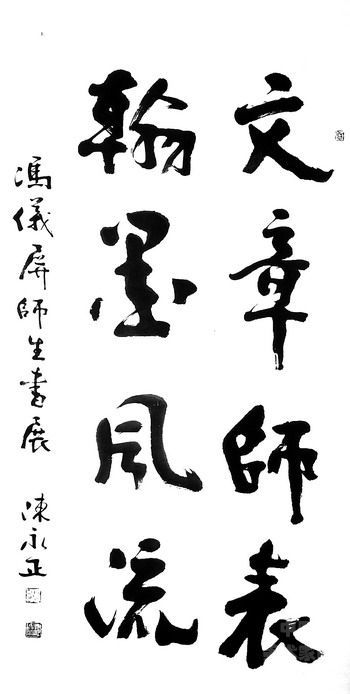 文章師表
翰墨风流
馮儀屏師生書展 陳永正